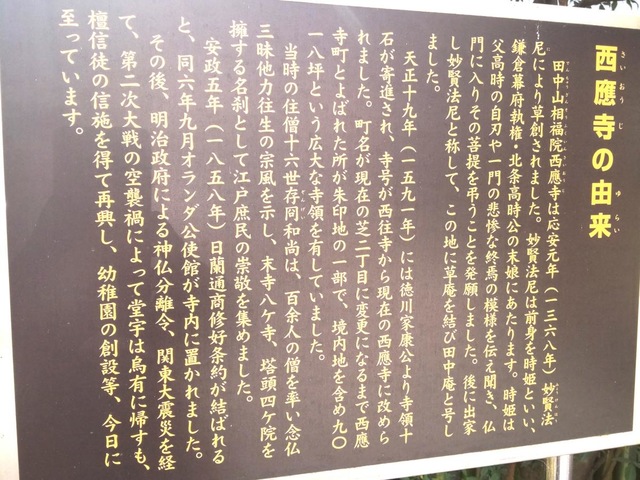 西應寺の由来
さいおうじ ゆらい
田中山相福院西應寺は応安元年（一三六八年）妙賢法
尼により草創されました。妙賢法尼は前身を時姫といい、
鎌倉幕府執権・北条高時公の末娘にあたります。時姫は
父高時の自刃や一門の悲惨な終焉の模様を伝え聞き、仏
門に入りその菩提を弔うことを発願しました。後に出家
し妙賢法尼と称して、この地に草庵を結び田中庵と号し
ました。
天正十九年（一五九一年）には徳川家康公より寺領十
石が寄進され、寺号が西往寺から現在の西應寺に改めら
れました。町名が現在の芝二丁目に変更になるまで西應
寺町とよばれた所が朱印地の一部で、境内地を含め九〇
一八坪という広大な寺領を有していました。
当時の住僧十六世存冏和尚は、百余人の僧を率い念仏
三昧他力往生の宗風を示し、末寺八ケ寺、塔頭四ケ院を
擁する名刹として江戸庶民の崇敬を集めました。
安政五年（一八五八年）日蘭通商修好条約が結ばれる
と、同六年九月オランダ公使館が寺内に置かれました。
その後、明治政府による神仏分離令、関東大震災を経
て、第二次大戦の空襲禍によって堂宇は烏有に帰すも、
檀信徒の信施を得て再興し、幼稚園の創設等、今日に
至っています。